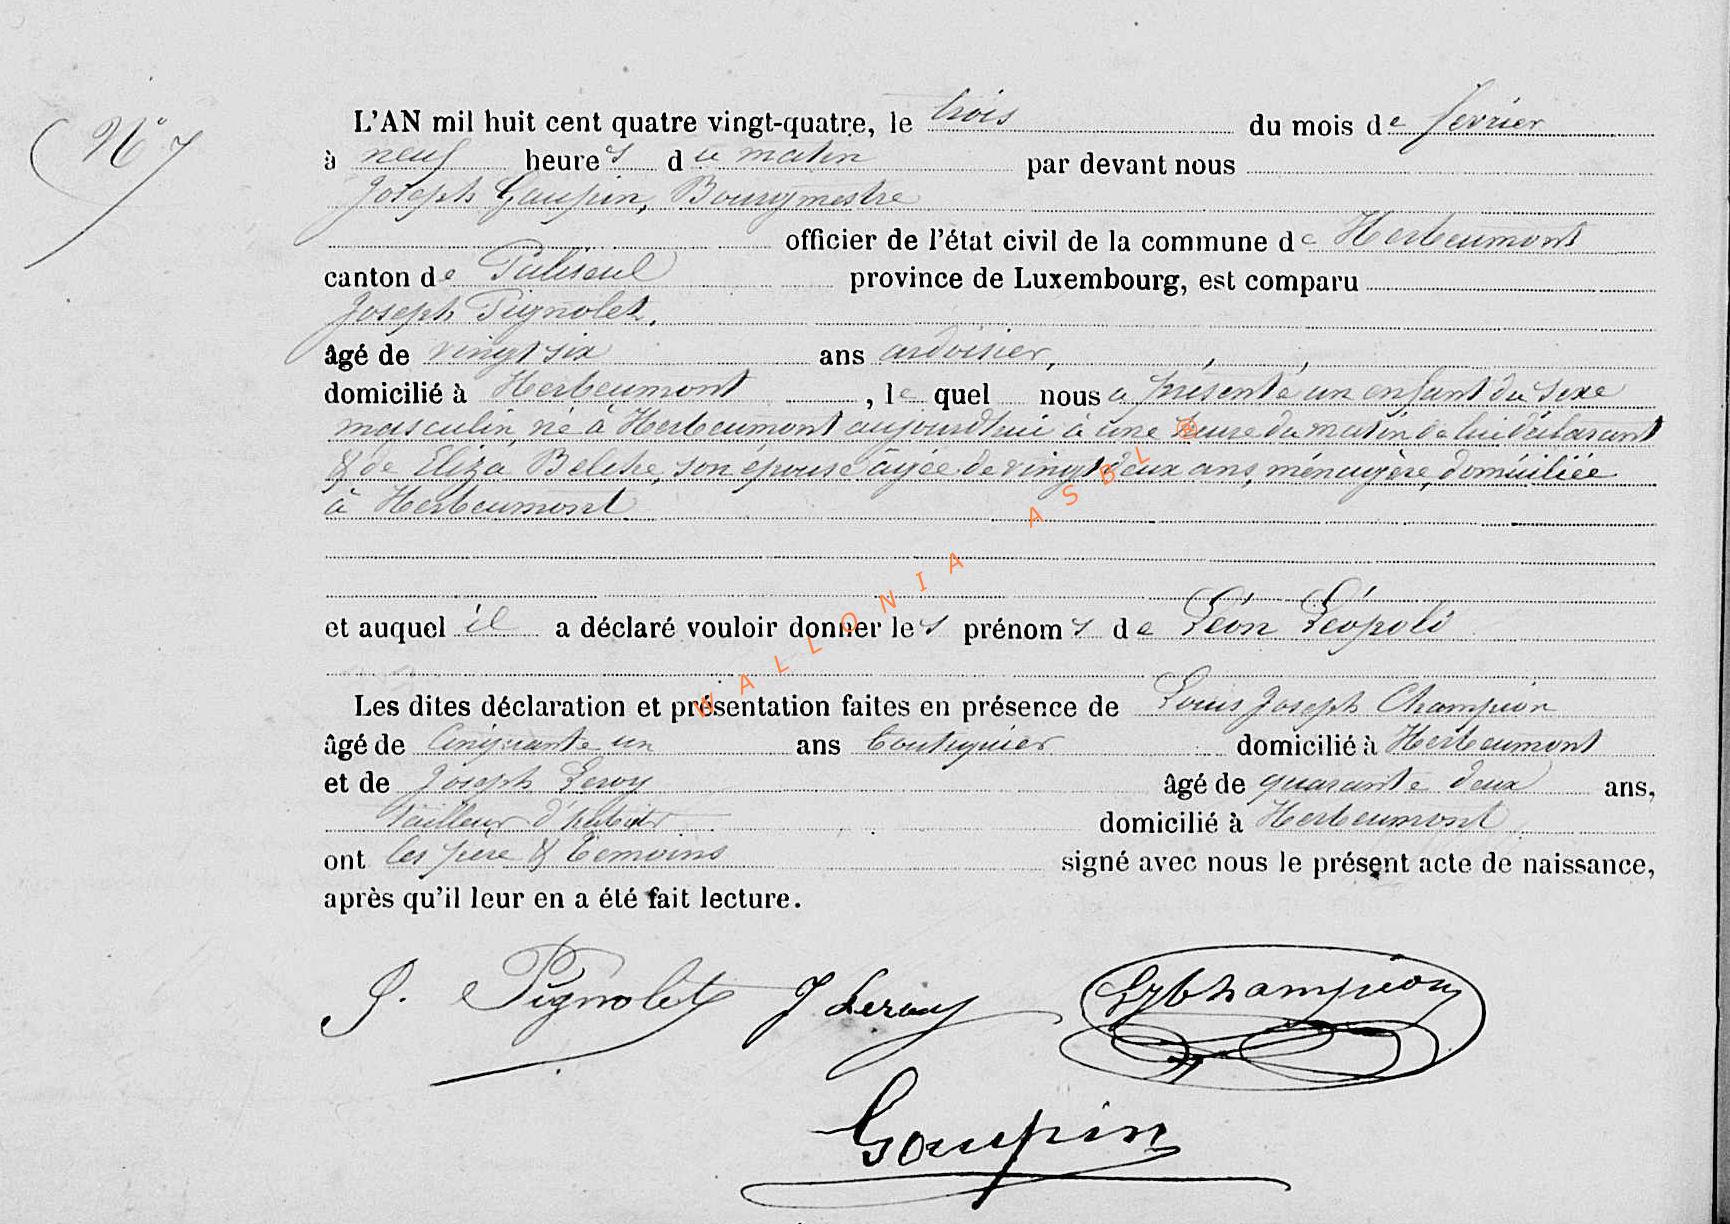 N° 7
L'AN mil huit cent quatre vingt-quatre, le trois du mois de février
à neuf heures du matin par devant nous
Joseph Gaupin, Bourgmestre
officier de l'état civil de la commune de Herbeumont
canton de Paliseul province de Luxembourg, est comparu
Joseph Pignolet,
âgé de vingt six ans ardoisier,
domicilié à Herbeumont, le quel nous a présenté un enfant du sexe
masculin, né à Herbeumont aujourd'hui à une heure du matin de lui déclarant
& de Eliza Belche, son épouse âgée de vingt deux ans, ménagère, domiciliée
à Herbeumont
et auquel il a déclaré vouloir donner les prénoms de Léon Léopold
Les dites déclaration et présentation faites en présence de Louis Joseph Champion
âgé de cinquante un ans boutiquier domicilié à Herbeumont
et de Joseph Leroy âgé de quarante deux ans,
tailleur d'habits domicilié à Herbeumont
ont les père & témoins signé avec nous le présent acte de naissance,
après qu'il leur en a été fait lecture.
J. Pignolet J Leroy LJChampion
Gaupin
WALLONIA ASBL ®